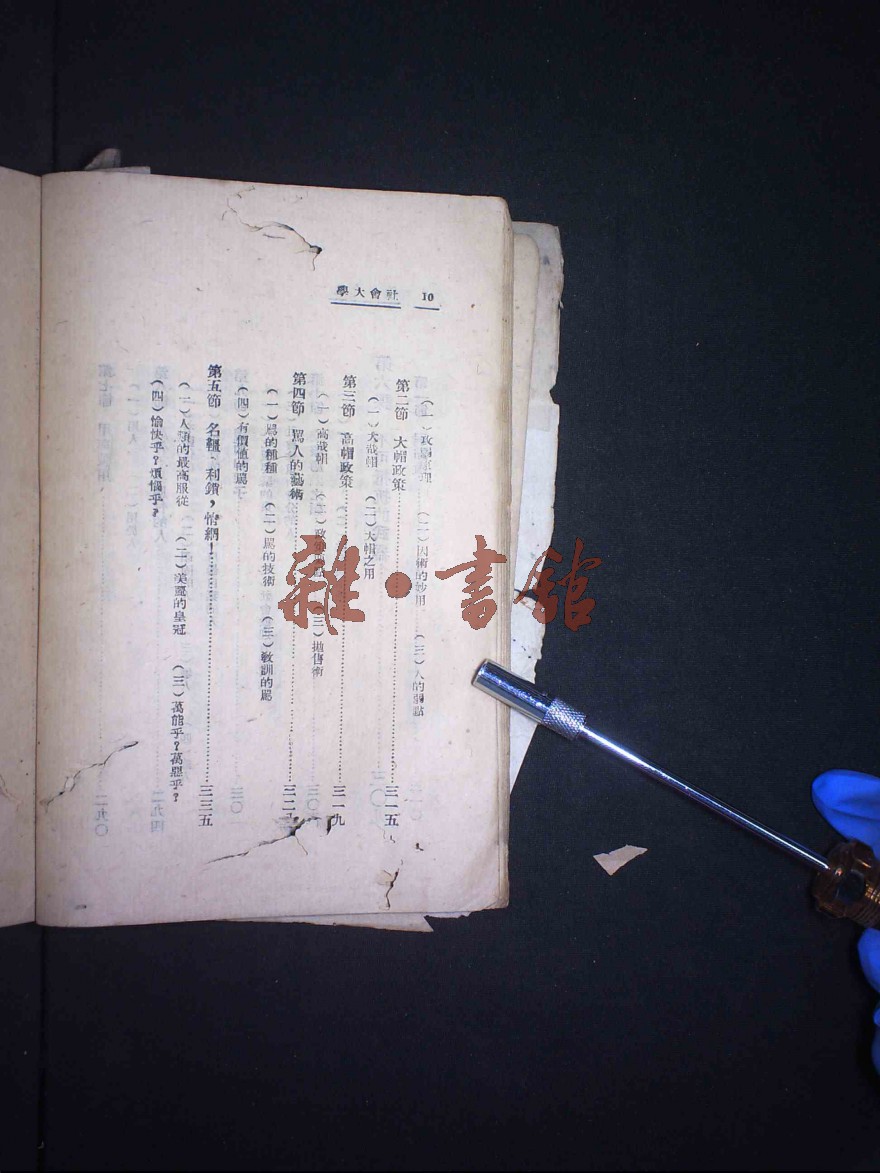 10　社會大學
（一）　（二）因術的妙用　（三）人的弱點
第二節　大帽政策……三一五
（一）大哉帽　（二）大帽之用
第三節　高帽政策……三一九
（一）高哉帽　（二）　（三）拋售術
第四節　罵人的藝術……三二
（一）罵的種種　（二）罵的技術　（三）教訓的罵
（四）有價値的罵
第五節　名韁、利鎖，情網！……三三五
（一）人類的最高服從　（二）美麗的皇冠　（三）萬能乎？萬惡乎？
（四）愉快乎？煩惱乎？
雜·書館